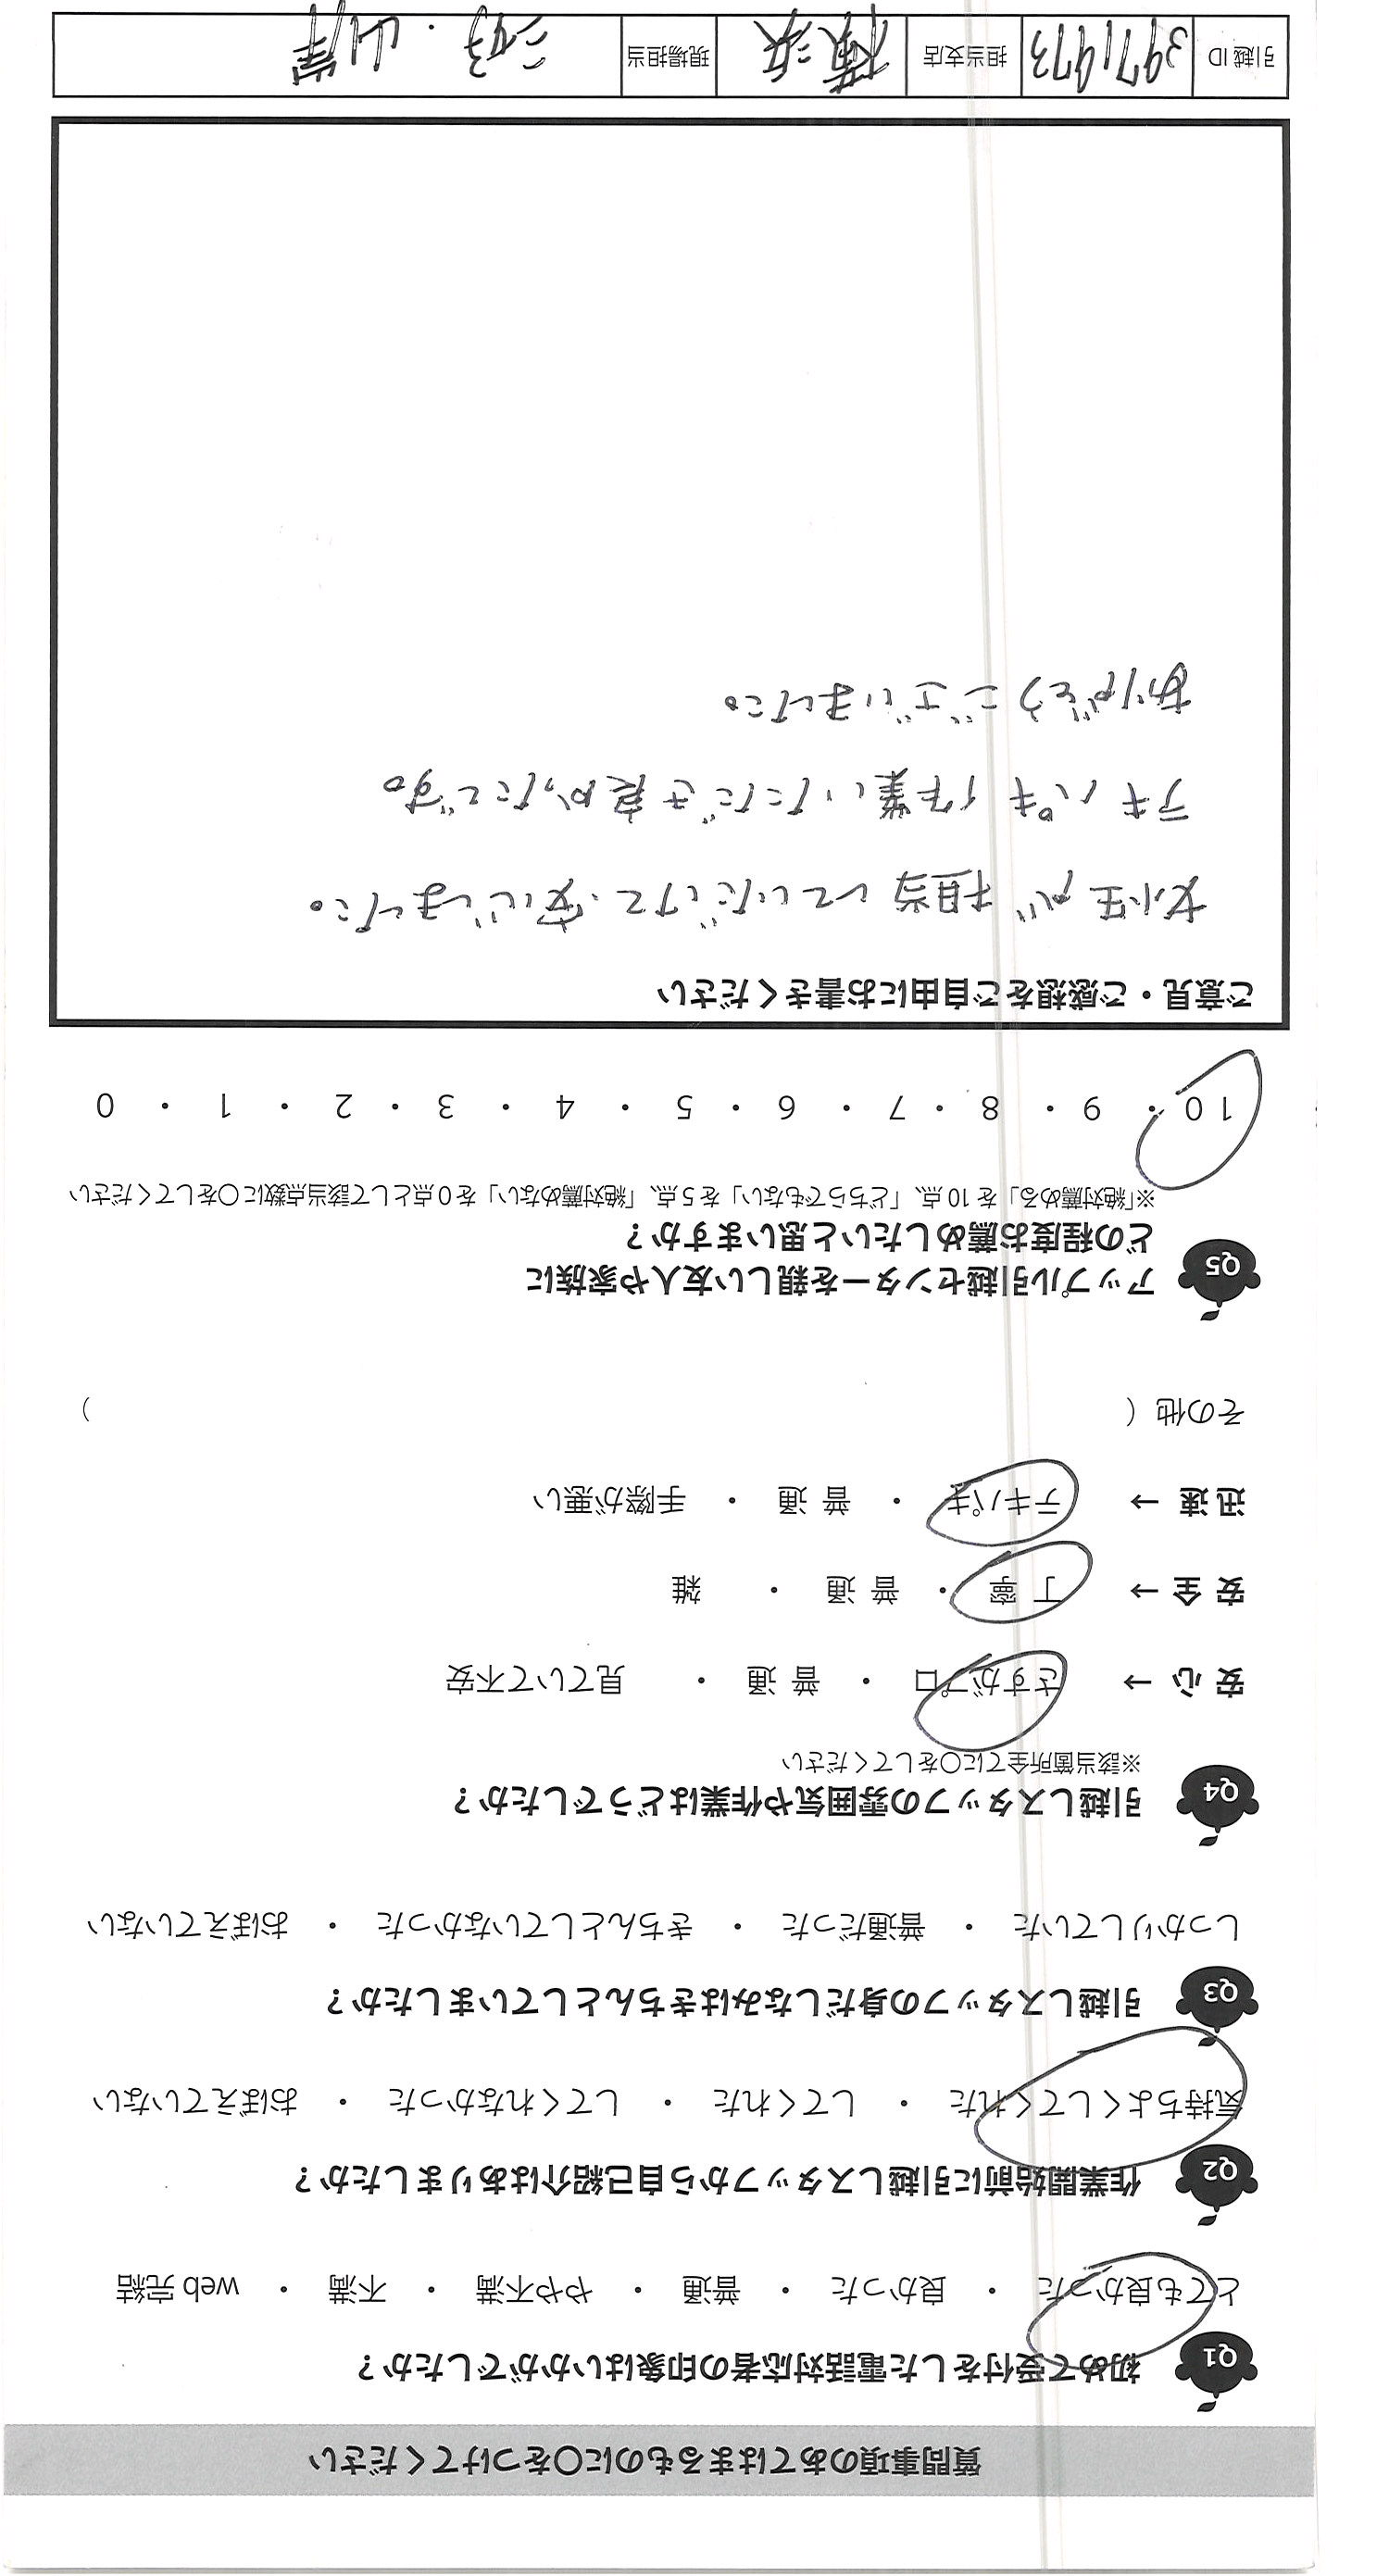 質問事項のあてはまるものに〇をつけてください
Q1 初めて受付をした電話対応者の印象はいかがでしたか？
とても良かった ・ 良かった ・ 普通 ・ やや不満 ・ 不満 ・ web 完結
Q2 作業開始前に引越しスタッフから自己紹介はありましたか？
気持ちよくしてくれた ・ してくれた ・ してくれなかった ・ おぼえていない
Q3 引越しスタッフの身だしなみはきちんとしていましたか？
しっかりしていた ・ 普通だった ・ きちんとしていなかった ・ おぼえていない
Q4 引越しスタッフの雰囲気や作業はどうでしたか？
※該当箇所全てに〇をしてください
安 心 → さすがプロ ・ 普 通 ・ 見ていて不安
安 全 → 丁 寧 ・ 普 通 ・ 雑
迅 速 → テキパキ ・ 普 通 ・ 手際が悪い
その他（ ）
Q5 アップル引越センターを親しい友人や家族に
どの程度お薦めしたいと思いますか？
※「絶対薦める」を 10 点、「どちらでもない」を 5 点、「絶対薦めない」を 0 点として該当点数に〇をしてください
10 ・ 9 ・ 8 ・ 7 ・ 6 ・ 5 ・ 4 ・ 3 ・ 2 ・ 1 ・ 0
ご意見・ご感想をご自由にお書きください
女性が担当していただけて、安心しました。
テキパキ作業いただき良かったです。
ありがとうございました。
引越 ID 3971973 担当支店 横浜 現場担当 三好・山岸